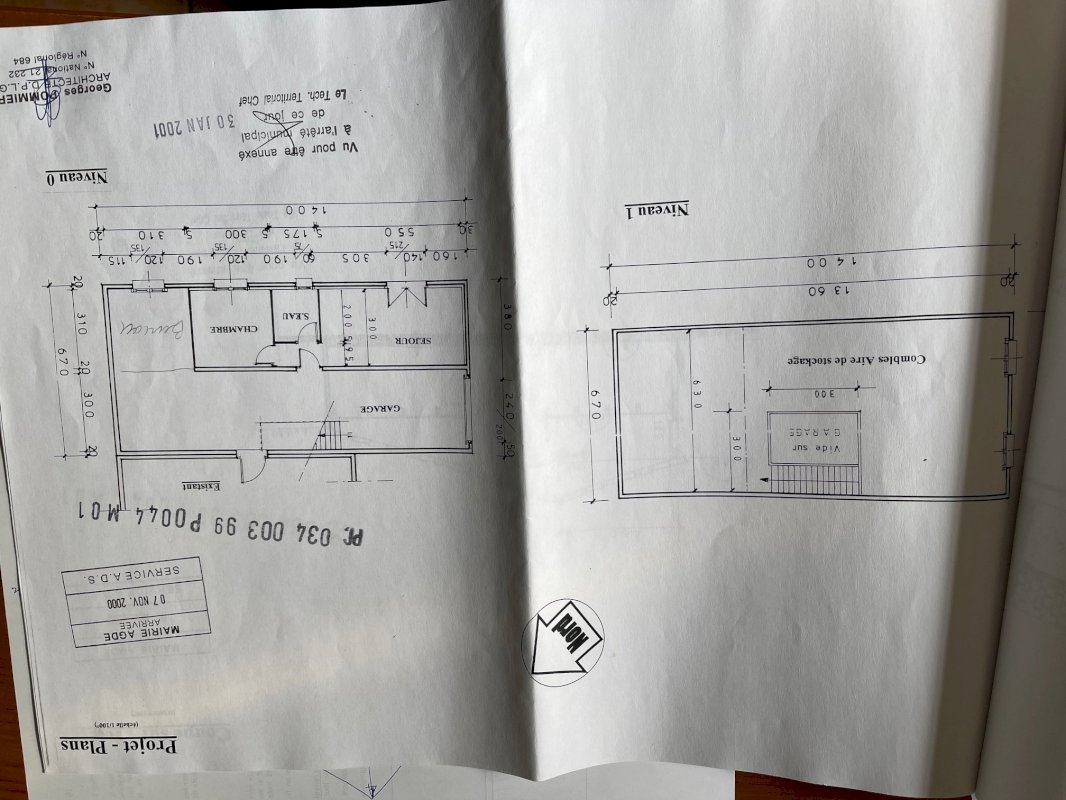 Projet - Plans
(échelle 1/100°)
MAIRIE AGDE
ARRIVÉE
07 NOV. 2000
SERVICE A.D.S.
PC 034 003 99 P0044 M01
Nord
Existant
GARAGE
SEJOUR
S.EAU
CHAMBRE
Bureau
20
300
20
310
20
670
50
240/200
380
300
200
5
195
160
140/215
305
60/75
190
120/135
190
120/135
115
30
550
5
175
5
300
5
310
20
1400
Niveau 0
Vide sur
GARAGE
300
300
630
670
Combles Aire de stockage
20
1360
20
1400
Niveau 1
Vu pour être annexé
à l'arrêté municipal
de ce jour
30 JAN 2001
Le Tech. Territorial Chef
Georges POMMIER
ARCHITECTE D.P.L.G
N° National 21 232
N° Régional 684